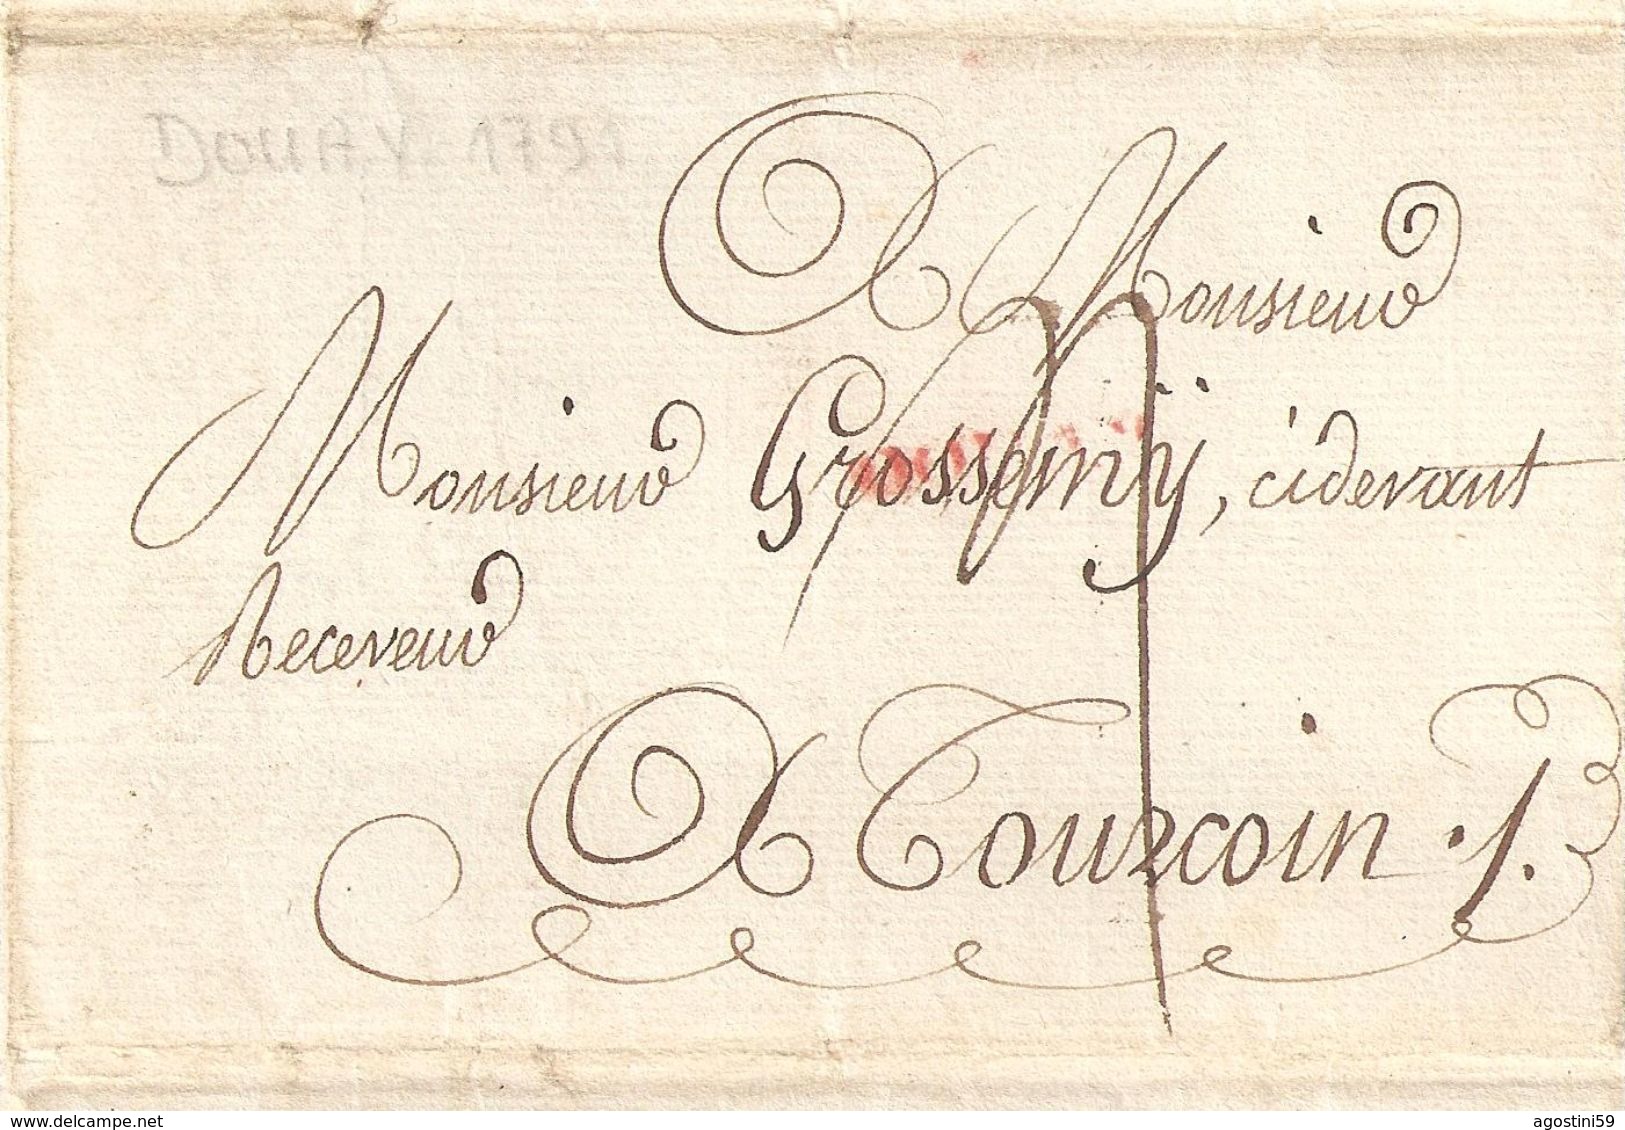 DOUAY 1791
A Monsieur
Monsieur Grossemÿ, cidevant
Receveur
A Tourcoin
www.delcampe.net
agostini59